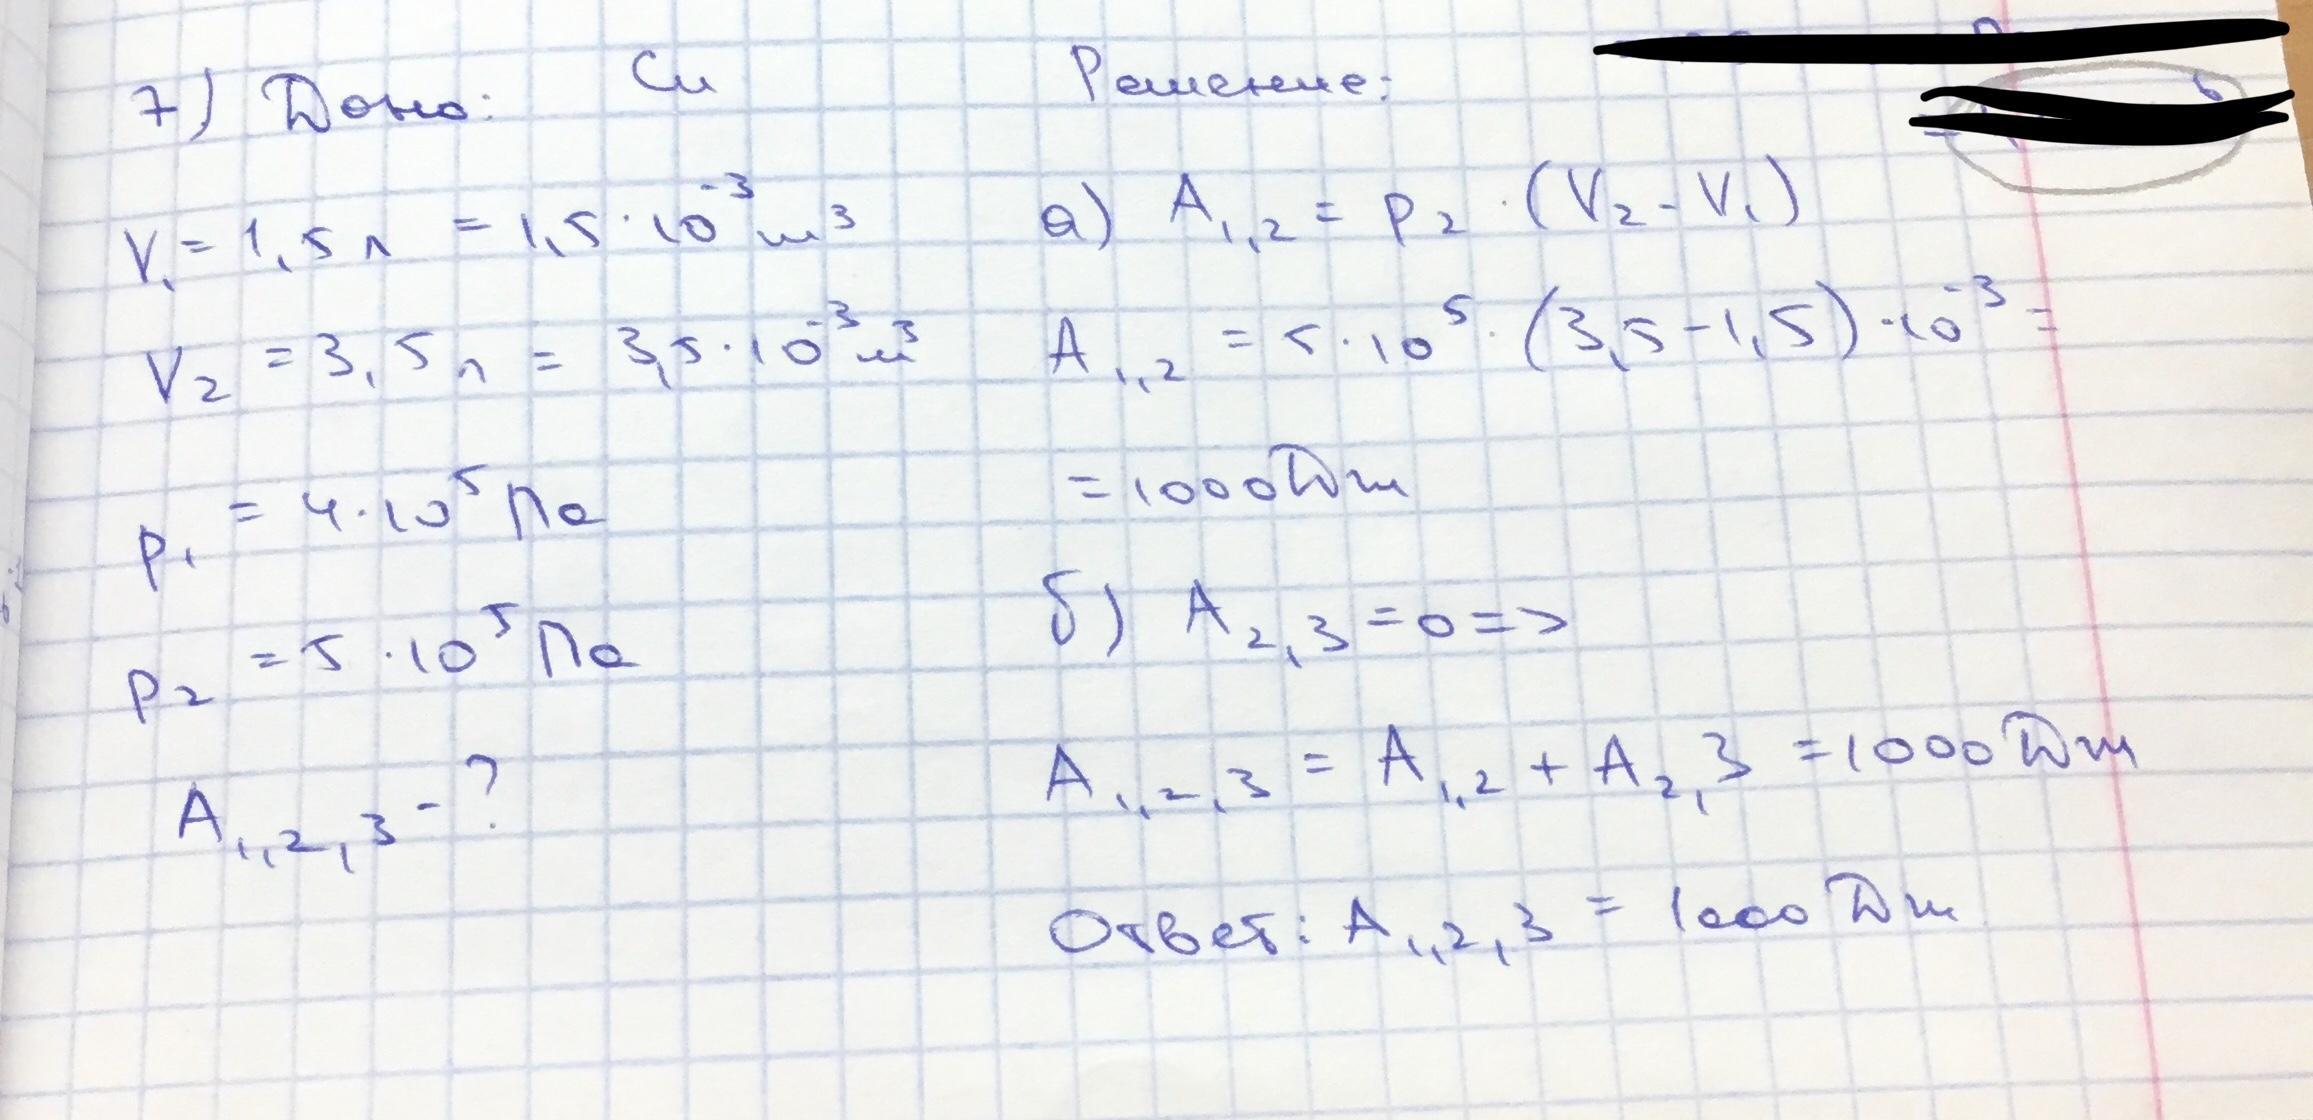 7) Дано: Си Решение:
V₁ = 1,5 л = 1,5·10⁻³ м³
V₂ = 3,5 л = 3,5·10⁻³ м³
p₁ = 4·10⁵ Па
p₂ = 5·10⁵ Па
A₁,₂,₃ - ?
а) A₁,₂ = p₂·(V₂-V₁)
A₁,₂ = 5·10⁵·(3,5-1,5)·10⁻³ =
= 1000 Дж
б) A₂,₃ = 0 =>
A₁,₂,₃ = A₁,₂ + A₂,₃ = 1000 Дж
Ответ: A₁,₂,₃ = 1000 Дж